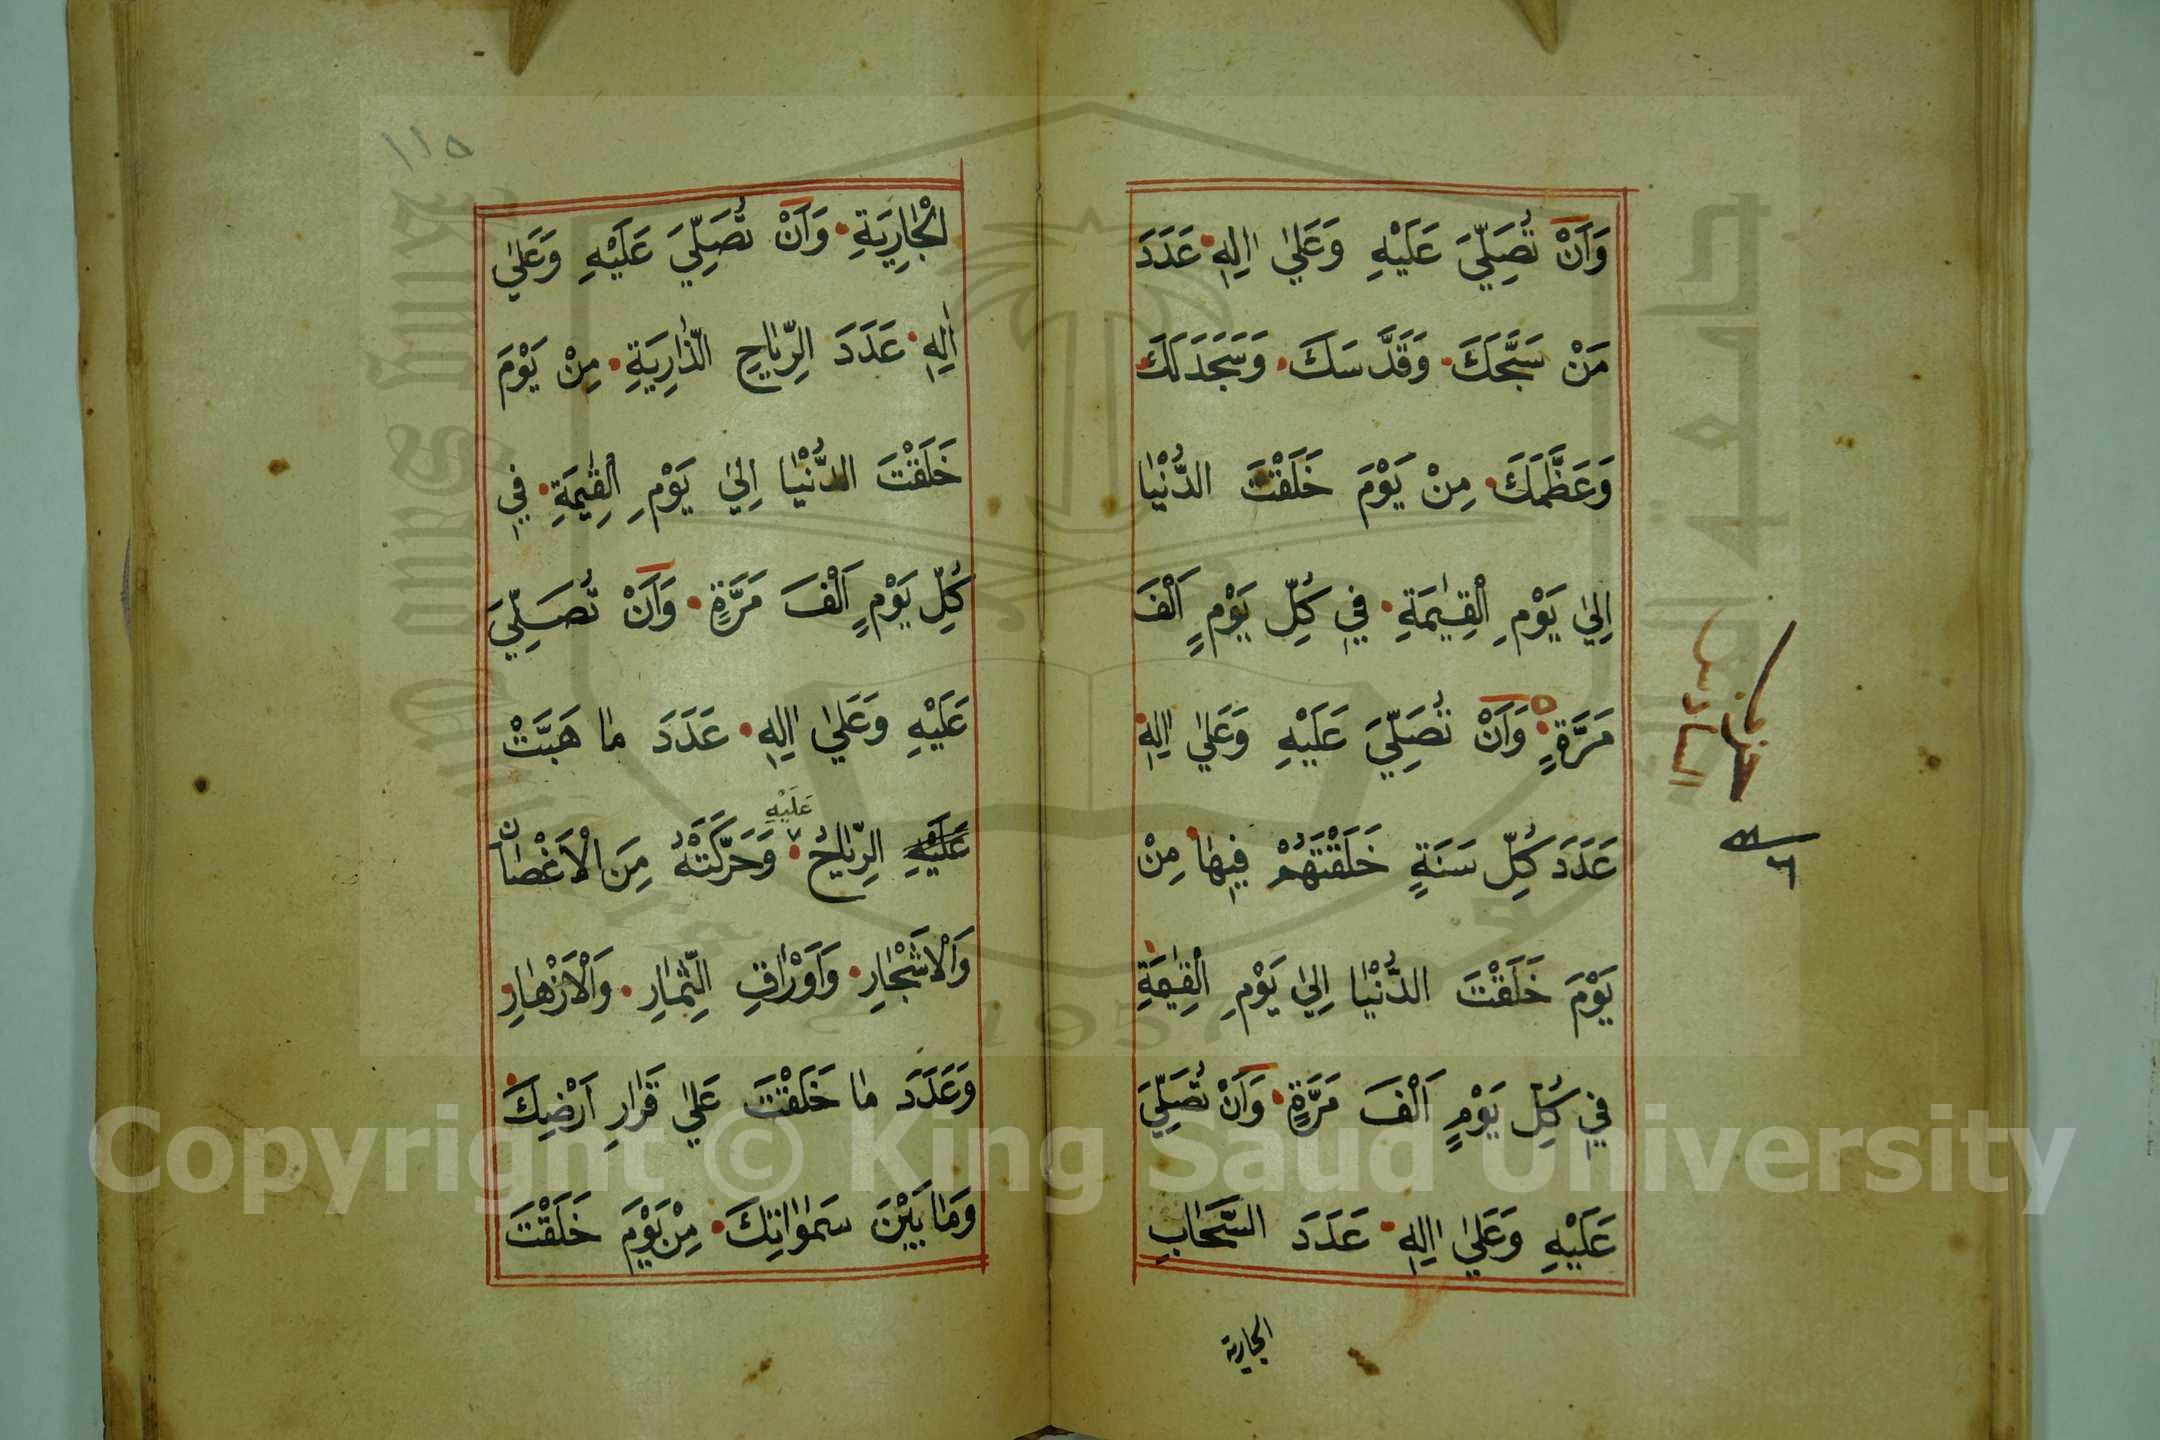 وَاَنْ تُصَلِّيَ عَلَيْهِ وَعَلٰي اٰلِهٖ عَدَدَ
مَنْ سَبَّحَكَ وَقَدَّسَكَ وَسَجَدَ لَكَ
وَعَظَّمَكَ مِنْ يَوْمَ خَلَقْتَ الدُّنْيٰا
اِلٰي يَوْمِ الْقِيٰمَةِ فِي كُلِّ يَوْمٍ اَلْفَ
مَرَّةٍ وَاَنْ تُصَلِّيَ عَلَيْهِ وَعَلٰي اٰلِهٖ
عَدَدَ كُلِّ سَنَةٍ خَلَقْتَهُمْ فِيهٰا مِنْ
يَوْمَ خَلَقْتَ الدُّنْيٰا اِلٰي يَوْمِ الْقِيٰمَةِ
فِي كُلِّ يَوْمٍ اَلْفَ مَرَّةٍ وَاَنْ تُصَلِّيَ
عَلَيْهِ وَعَلٰي اٰلِهٖ عَدَدَ السَّحٰابِ
الجارية
حزب
السادس
١١٥
الْجٰارِيَةِ وَاَنْ تُصَلِّيَ عَلَيْهِ وَعَلٰي
اٰلِهٖ عَدَدَ الرِّيٰاحِ الذّٰارِيَةِ مِنْ يَوْمَ
خَلَقْتَ الدُّنْيٰا اِلٰي يَوْمِ الْقِيٰمَةِ فِي
كُلِّ يَوْمٍ اَلْفَ مَرَّةٍ وَاَنْ تُصَلِّيَ
عَلَيْهِ وَعَلٰي اٰلِهٖ عَدَدَ مٰا هَبَّتْ
عَلَيْهِ
عَلَيْهِ الرِّيٰاحُ وَحَرَّكَتْهُ مِنَ الْاَغْصٰانِ
وَالْاَشْجٰارِ وَاَوْرٰاقِ الثِّمٰارِ وَالْاَزْهٰارِ
وَعَدَدَ مٰا خَلَقْتَ عَلٰي قَرٰارِ اَرْضِكَ
وَمٰا بَيْنَ سَمٰوٰاتِكَ مِنْ يَوْمَ خَلَقْتَ
King Saud University
جامعة الملك سعود
1957
Copyright © King Saud University